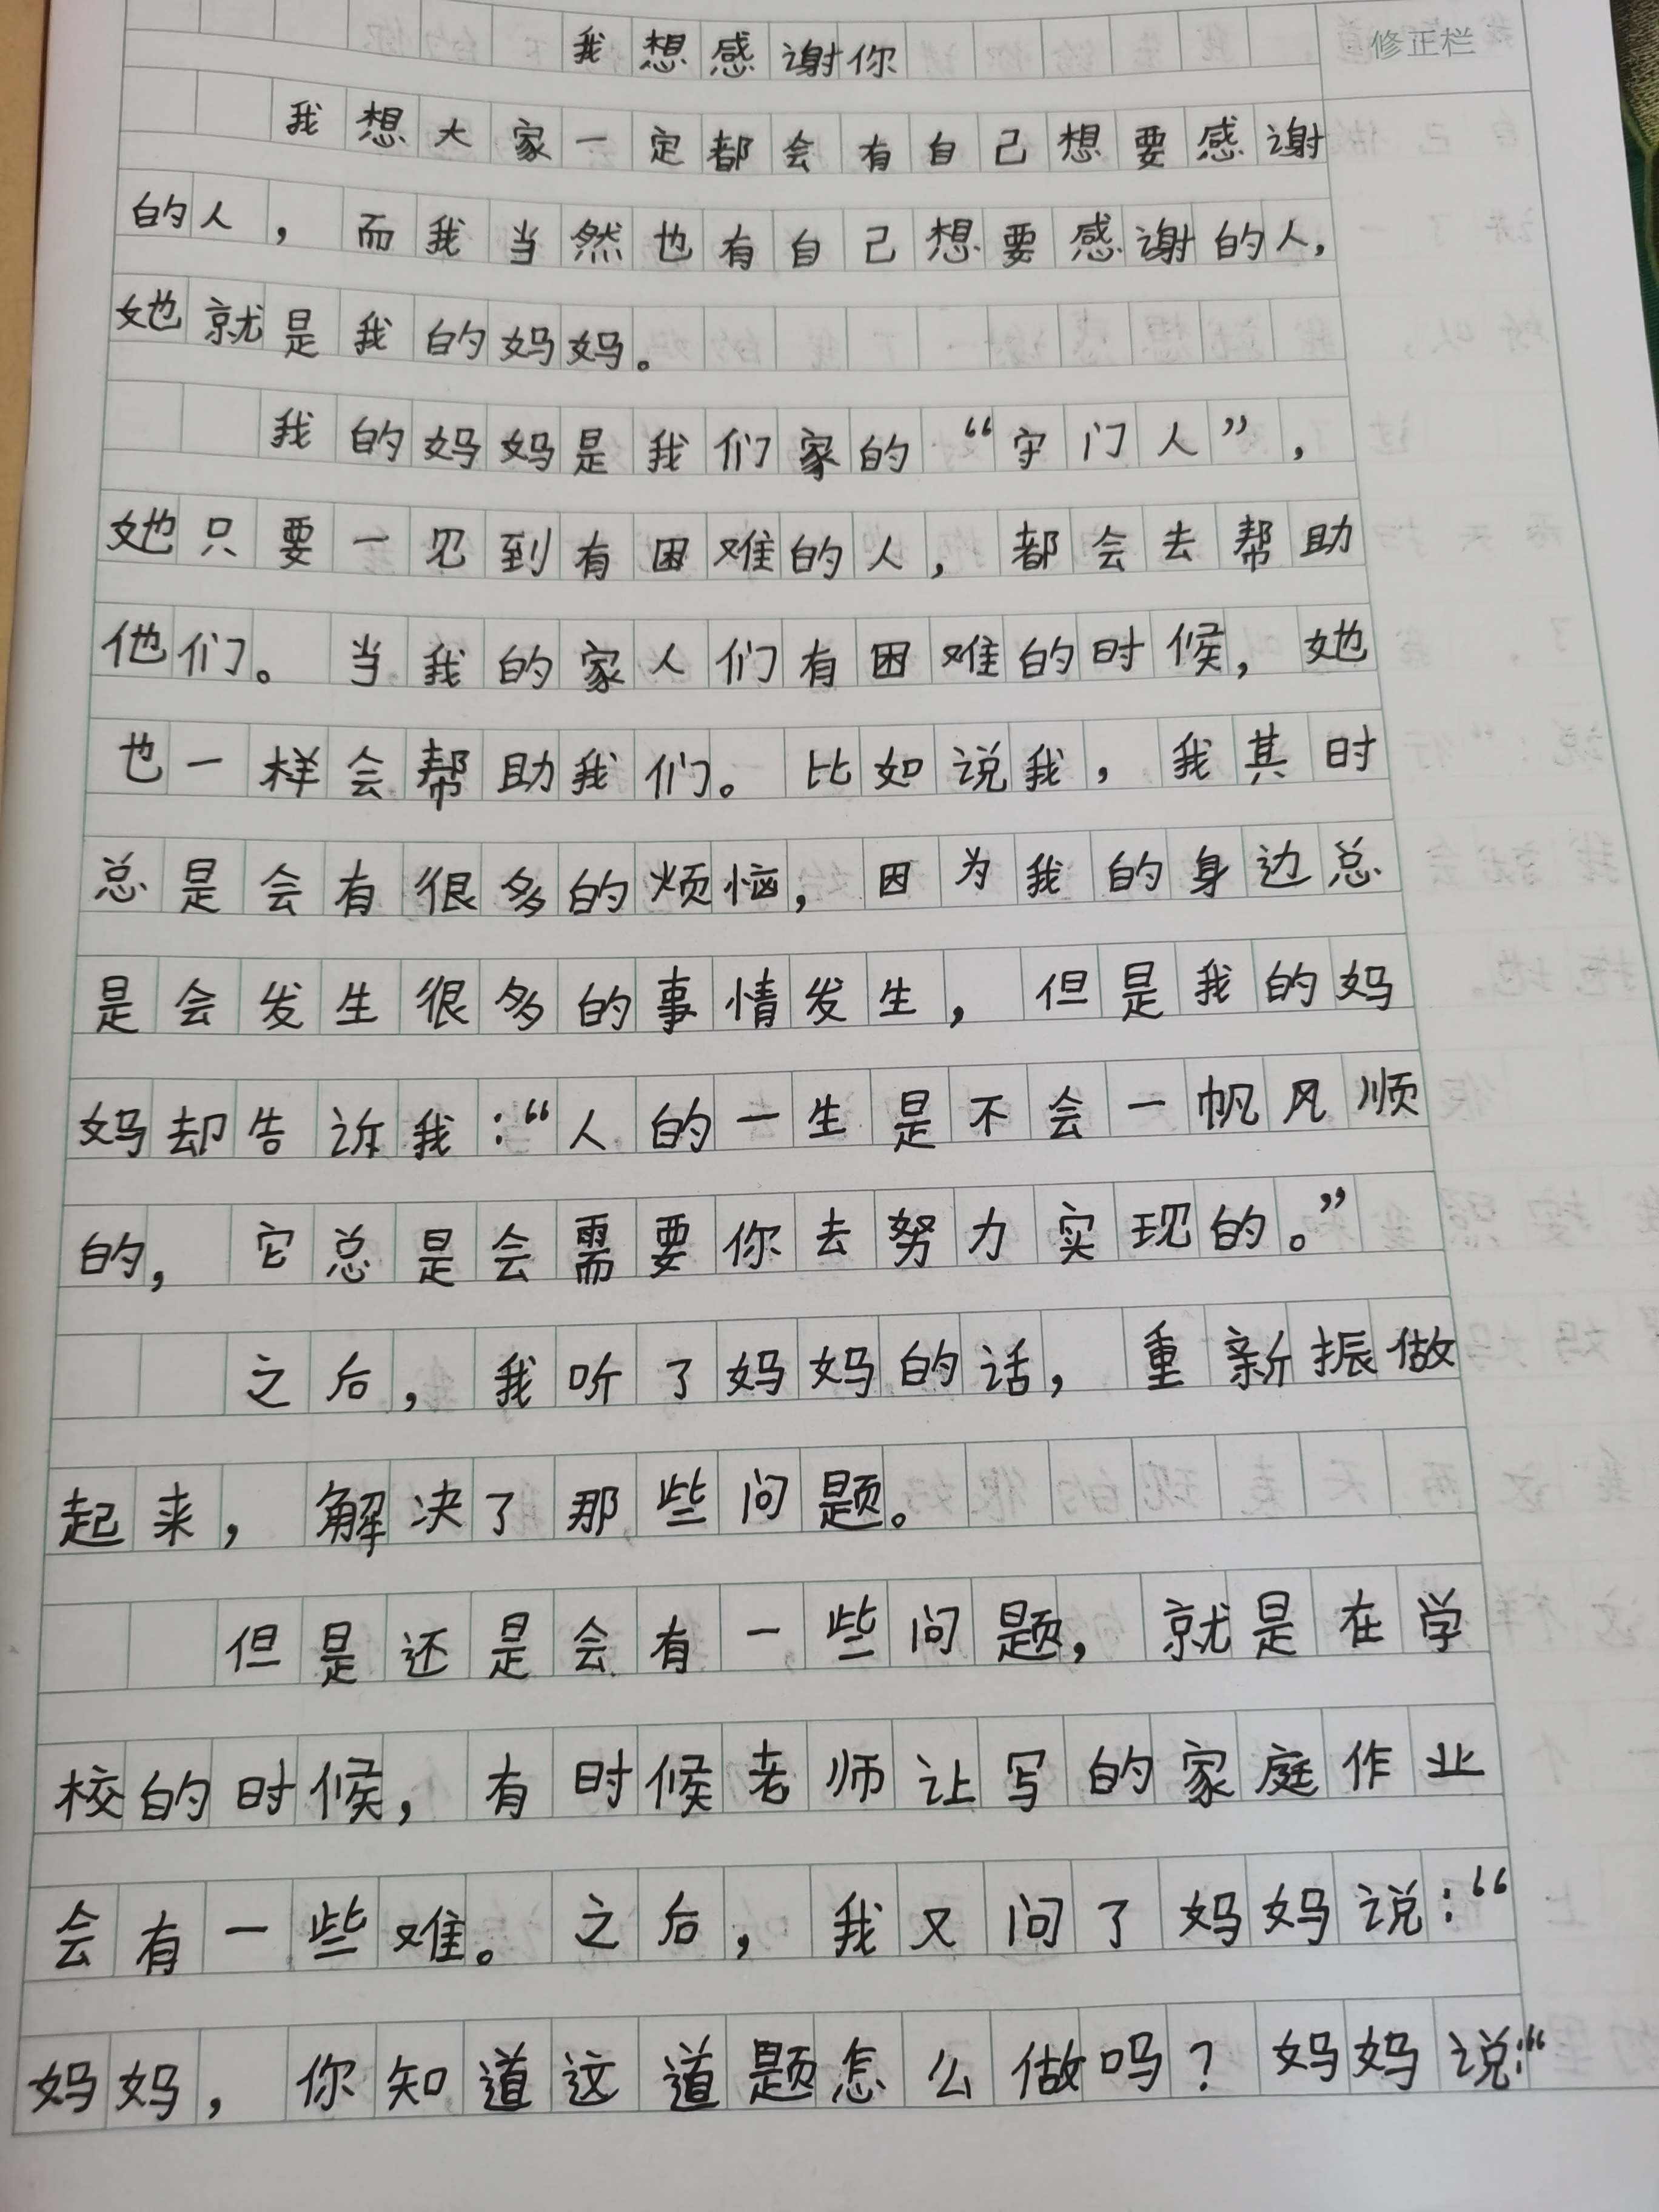 我想感谢你
修正栏
我想大家一定都会有自己想要感谢
的人，而我当然也有自己想要感谢的人，
她就是我的妈妈。
我的妈妈是我们家的“守门人”，
她只要一见到有困难的人，都会去帮助
他们。当我的家人们有困难的时候，她
也一样会帮助我们。比如说我，我其时
总是会有很多的烦恼，因为我的身边总
是会发生很多的事情发生，但是我的妈
妈却告诉我：“人的一生是不会一帆风顺
的，它总是会需要你去努力实现的。”
之后，我听了妈妈的话，重新振做
起来，解决了那些问题。
但是还是会有一些问题，就是在学
校的时候，有时候老师让写的家庭作业
会有一些难。之后，我又问了妈妈说：“
妈妈，你知道这道题怎么做吗？妈妈说：“